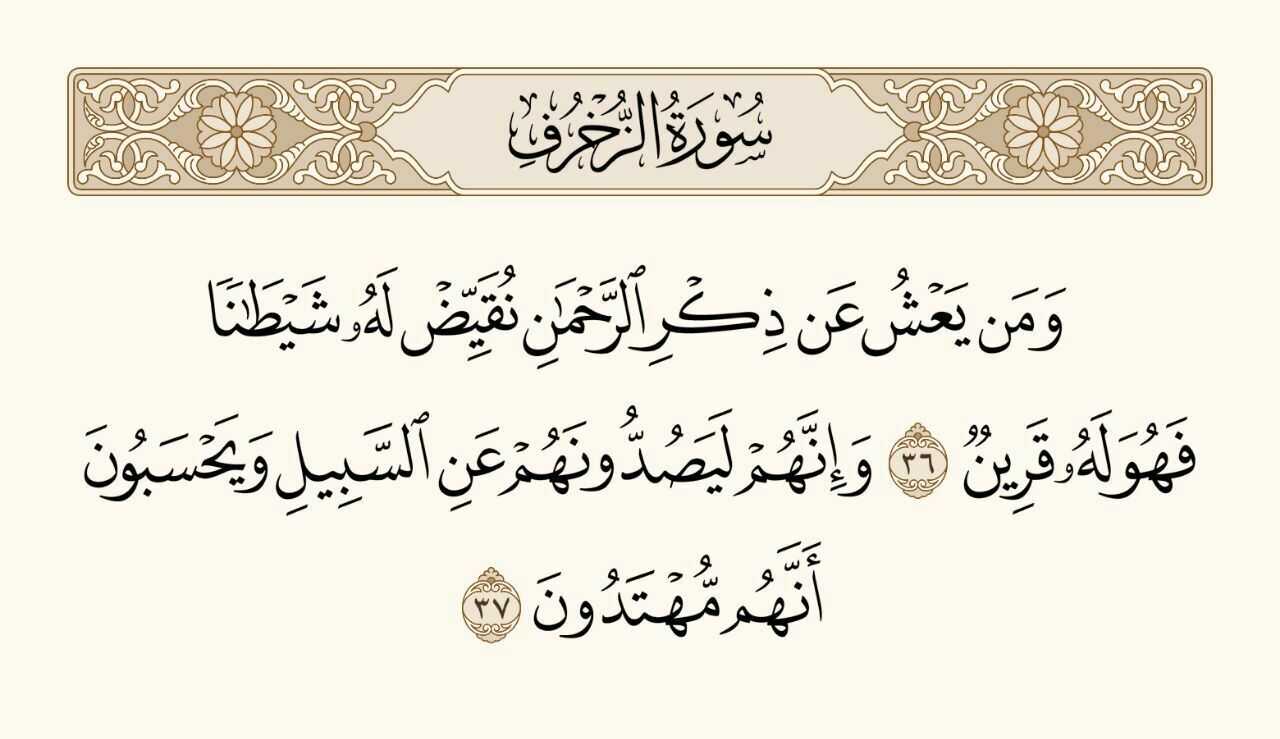 سُورَةُ الزُّخْرُفِ
وَمَن يَعْشُ عَن ذِكْرِ ٱلرَّحْمَٰنِ نُقَيِّضْ لَهُۥ شَيْطَٰنًا
فَهُوَ لَهُۥ قَرِينٌ ٣٦ وَإِنَّهُمْ لَيَصُدُّونَهُمْ عَنِ ٱلسَّبِيلِ وَيَحْسَبُونَ
أَنَّهُم مُّهْتَدُونَ ٣٧